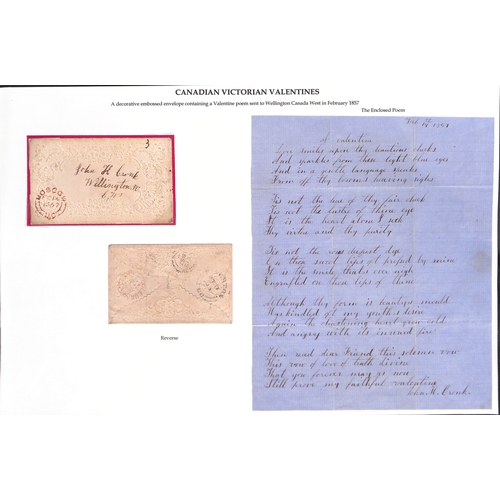 CANADIAN VICTORIAN VALENTINES
A decorative embossed envelope containing a Valentine poem sent to Wellington Canada West in February 1857
The Enclosed Poem
3
John H Cronk
Wellington
C W
MOSCOW
1857
U.C.
Reverse
A valentine
Love smiles upon thy beautious cheeks
And sparkles from those light blue eyes
And in a gentle language speaks
From off thy bosom's heaving sighs
Tis not the hue of thy fair cheek
Tis not the lustre of thine eye
It is the heart alone I seek
Thy and thy purity
Tis not the rose deepest dye
On those sweet lips oft pressed by mine
It is the smile that's ever nigh
Engrafted on those lips of thine
Although thy form is beauties mould
Again the heart grown cold
And angry with its inward fire
Then read dear Friend this solemn vow
This vow of love of truth divine
That you forever may as now
Still prove my faithful valentine
John H. Cronk